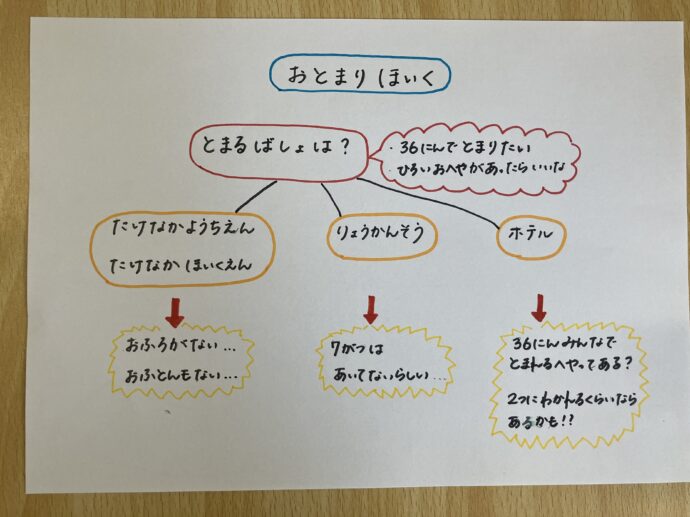 おとまりほいく
とまるばしょは?
・36にんでとまりたい
・ひろいおへやがあったらいいな
たけなかようちえん
たけなかほいくえん
りょうかんそう
ホテル
おふろがない...
おふとんもない...
7がつは
あいてないらしい...
36にんみんなで
とまれるへやってある?
2つにわかれるくらいなら
あるかも!?